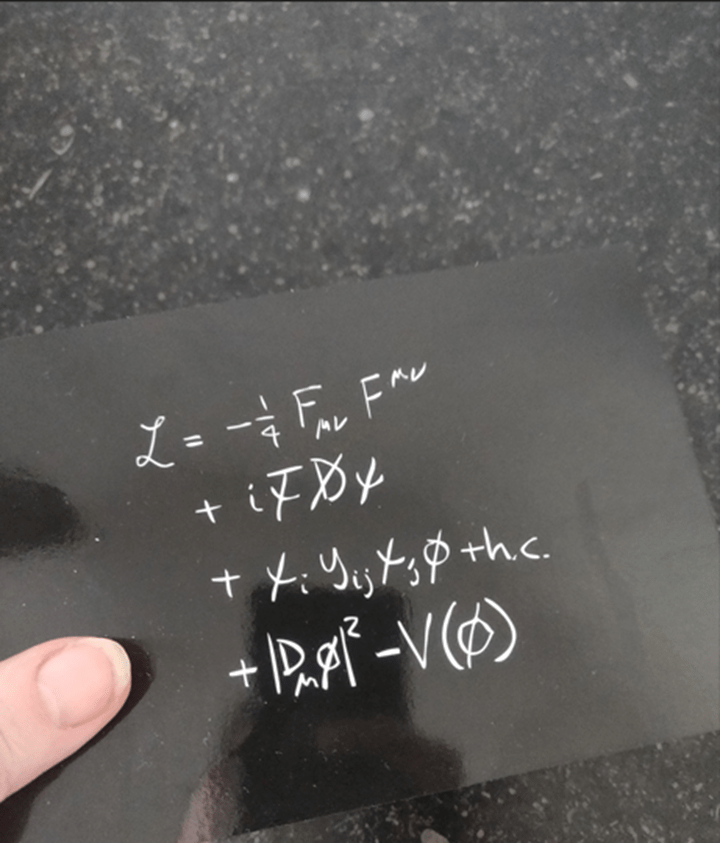 ℒ = -¼ F_μν F^μν
+ iψ̄D̸ψ
+ ψ_i y_ij ψ_j φ + h.c.
+ |D_μ φ|² - V(φ)